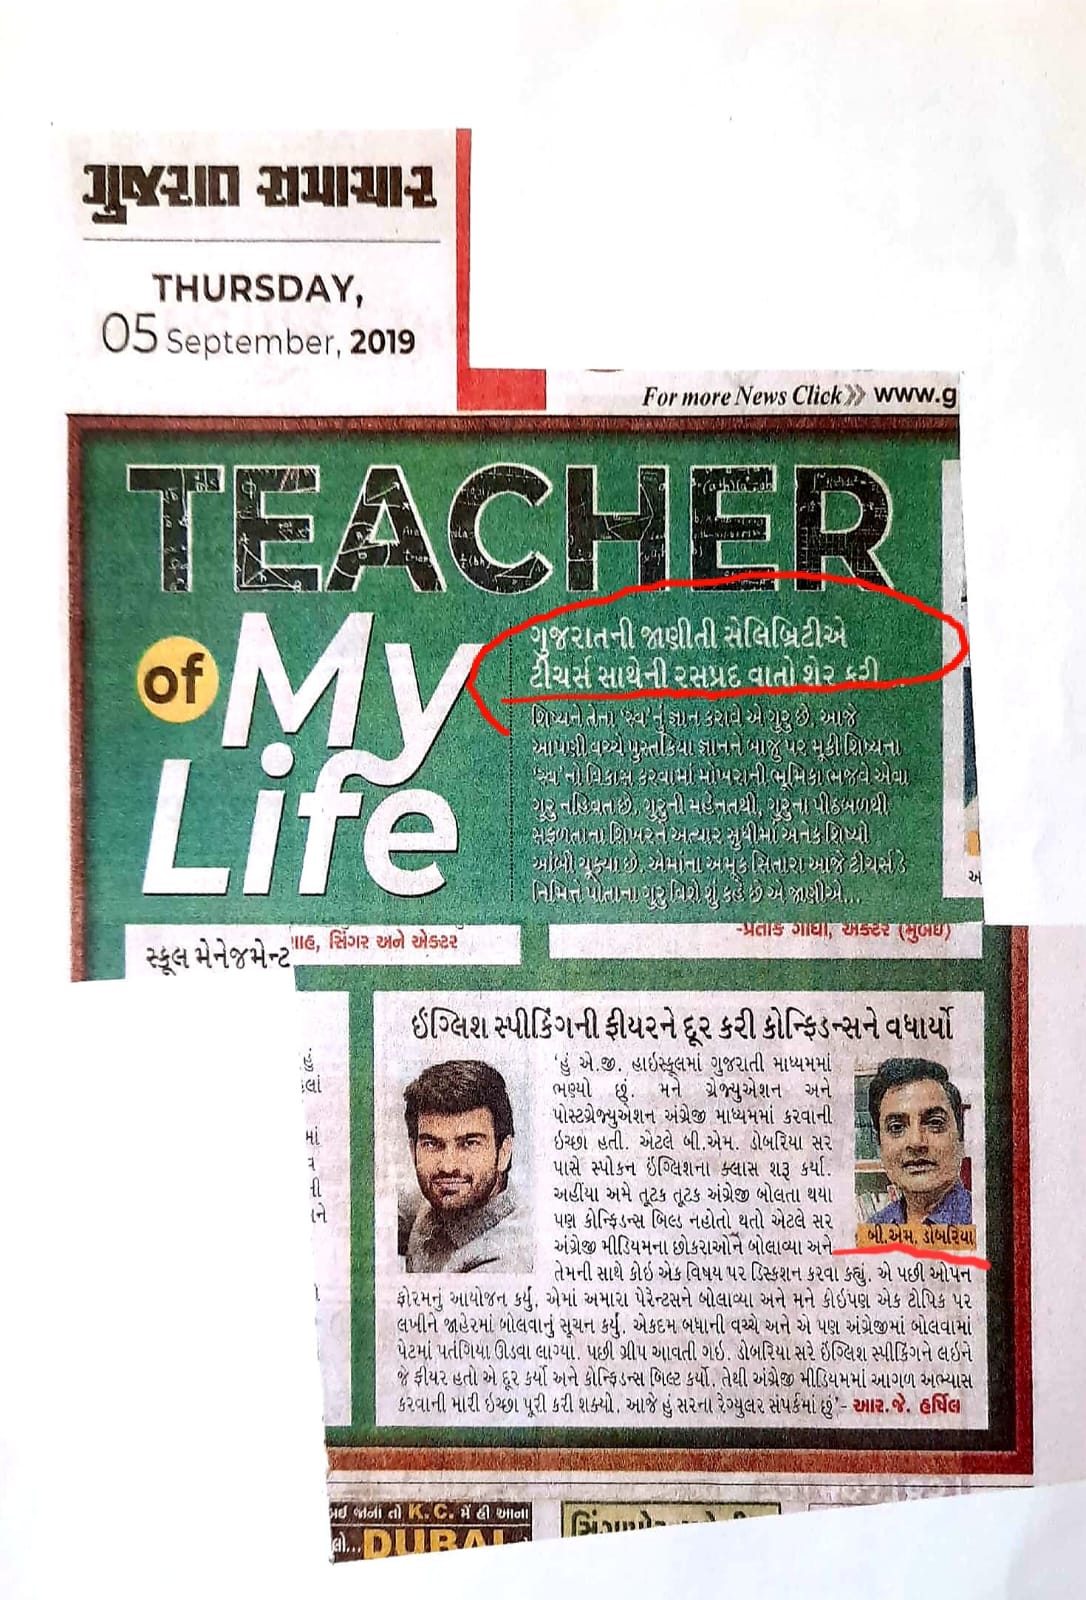 ગુજરાત સમાચાર
THURSDAY,
05 September, 2019
For more News Click» www.g
TEACHER
of My
Life
ગુજરાતની જાણીતી સેલિબ્રિટીએ
ટીચર્સ સાથેની રસપ્રદ વાતો શેર કરી...
શિષ્યને તેના 'સ્વ'નું જ્ઞાન કરાવે એ ગુરુ છે. આજે
આપણી વચ્ચે પુસ્તકિયા જ્ઞાનને બાજુ પર મૂકી શિષ્યના
'સ્વ'નો વિકાસ કરવામાં મોખરાની ભૂમિકા ભજવે એવા
ગુરુ નહિવત છે. ગુરુની મહેનતથી, ગુરુના પીઠબળથી
સફળતાના શિખરને અત્યાર સુધીમાં અનેક શિષ્યો
આંબી ચૂક્યા છે. એમાંના અમૂક સિતારા આજે ટીચર્સ ડે
નિમિત્તે પોતાના ગુરુ વિશે શું કહે છે એ જાણીએ...
અ
સ્કૂલ મેનેજમેન્ટ
ાાહ, સિંગર અને એક્ટર
-પ્રતીક ગાંધી, એક્ટર (મુંબઇ)
ઇંગ્લિશ સ્પીકિંગની ફીયરને દૂર કરી કોન્ફિડન્સને વધાર્યો
'હું એ.જી. હાઇસ્કૂલમાં ગુજરાતી માધ્યમમાં
ભણ્યો છું. મને ગ્રેજ્યુએશન અને
પોસ્ટગ્રેજ્યુએશન અંગ્રેજી માધ્યમમાં કરવાની
ઇચ્છા હતી. એટલે બી.એમ. ડોબરિયા સર
પાસે સ્પોકન ઇંગ્લિશના ક્લાસ શરૂ કર્યા.
અહીંયા અમે તૂટક તૂટક અંગ્રેજી બોલતા થયા
પણ કોન્ફિડન્સ બિલ્ડ નહોતો થતો એટલે સર
અંગ્રેજી મીડિયમના છોકરાઓને બોલાવ્યા અને
બી.એમ. ડોબરિયા
તેમની સાથે કોઇ એક વિષય પર ડિસ્કશન કરવા કહ્યું. એ પછી ઓપન
ફોરમનું આયોજન કર્યું, એમાં અમારા પેરેન્ટસને બોલાવ્યા અને મને કોઇપણ એક ટોપિક પર
લખીને જાહેરમાં બોલવાનું સૂચન કર્યું. એકદમ બધાની વચ્ચે અને એ પણ અંગ્રેજીમાં બોલવામાં
પેટમાં પતંગિયા ઊડવા લાગ્યા. પછી ગ્રીપ આવતી ગઇ. ડોબરિયા સરે ઇંગ્લિશ સ્પીકિંગને લઇને
જે ફીયર હતો એ દૂર કર્યો અને કોન્ફિડન્સ બિલ્ટ કર્યો. તેથી અંગ્રેજી મીડિયમમાં આગળ અભ્યાસ
કરવાની મારી ઇચ્છા પૂરી કરી શક્યો. આજે હું સરના રેગ્યુલર સંપર્કમાં છું'- આર.જે. હર્ષિલ
જાના તો K.C. મેં હી આના
DUBAI